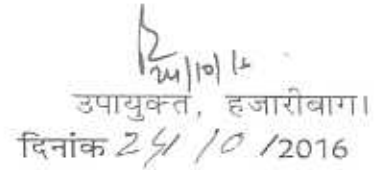 24/10/16
उपायुक्त, हजारीबाग।
दिनांक 24/10/2016